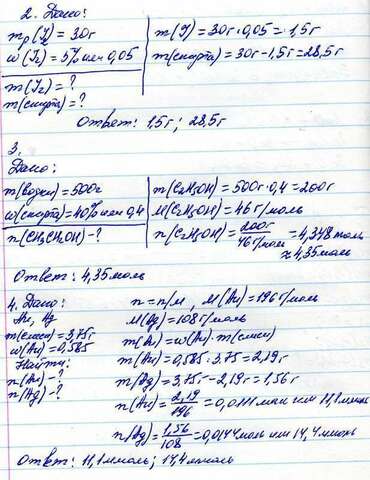 2. Дано:
mр(I2) = 30г
w(I2) = 5% или 0,05
m(I2) = ?
m(спирта) = ?
m(I) = 30г·0,05 = 1,5г
m(спирта) = 30г-1,5г = 28,5г
Ответ: 1,5г; 28,5г
3.
Дано:
m(водки) = 500г
w(спирта) = 40% или 0,4
n(CH3CH2OH) - ?
m(C2H5OH) = 500г·0,4 = 200г
M(C2H5OH) = 46 г/моль
n(C2H5OH) = 200г / 46 г/моль = 4,348 моль
≈ 4,35моль
Ответ: 4,35моль
4. Дано:
Au, Ag
m(смеси) = 3,75г
w(Au) = 0,585
Найти:
n(Au) - ?
n(Ag) - ?
n = m/M, M(Au) = 196 г/моль
M(Ag) = 108 г/моль
m(Au) = w(Au)·m(смеси)
m(Au) = 0,585·3,75 = 2,19г
m(Ag) = 3,75г-2,19г = 1,56г
n(Au) = 2,19 / 196 = 0,0111моль или 11,1ммоль
n(Ag) = 1,56 / 108 = 0,0144моль или 14,4ммоль
Ответ: 11,1ммоль; 14,4ммоль